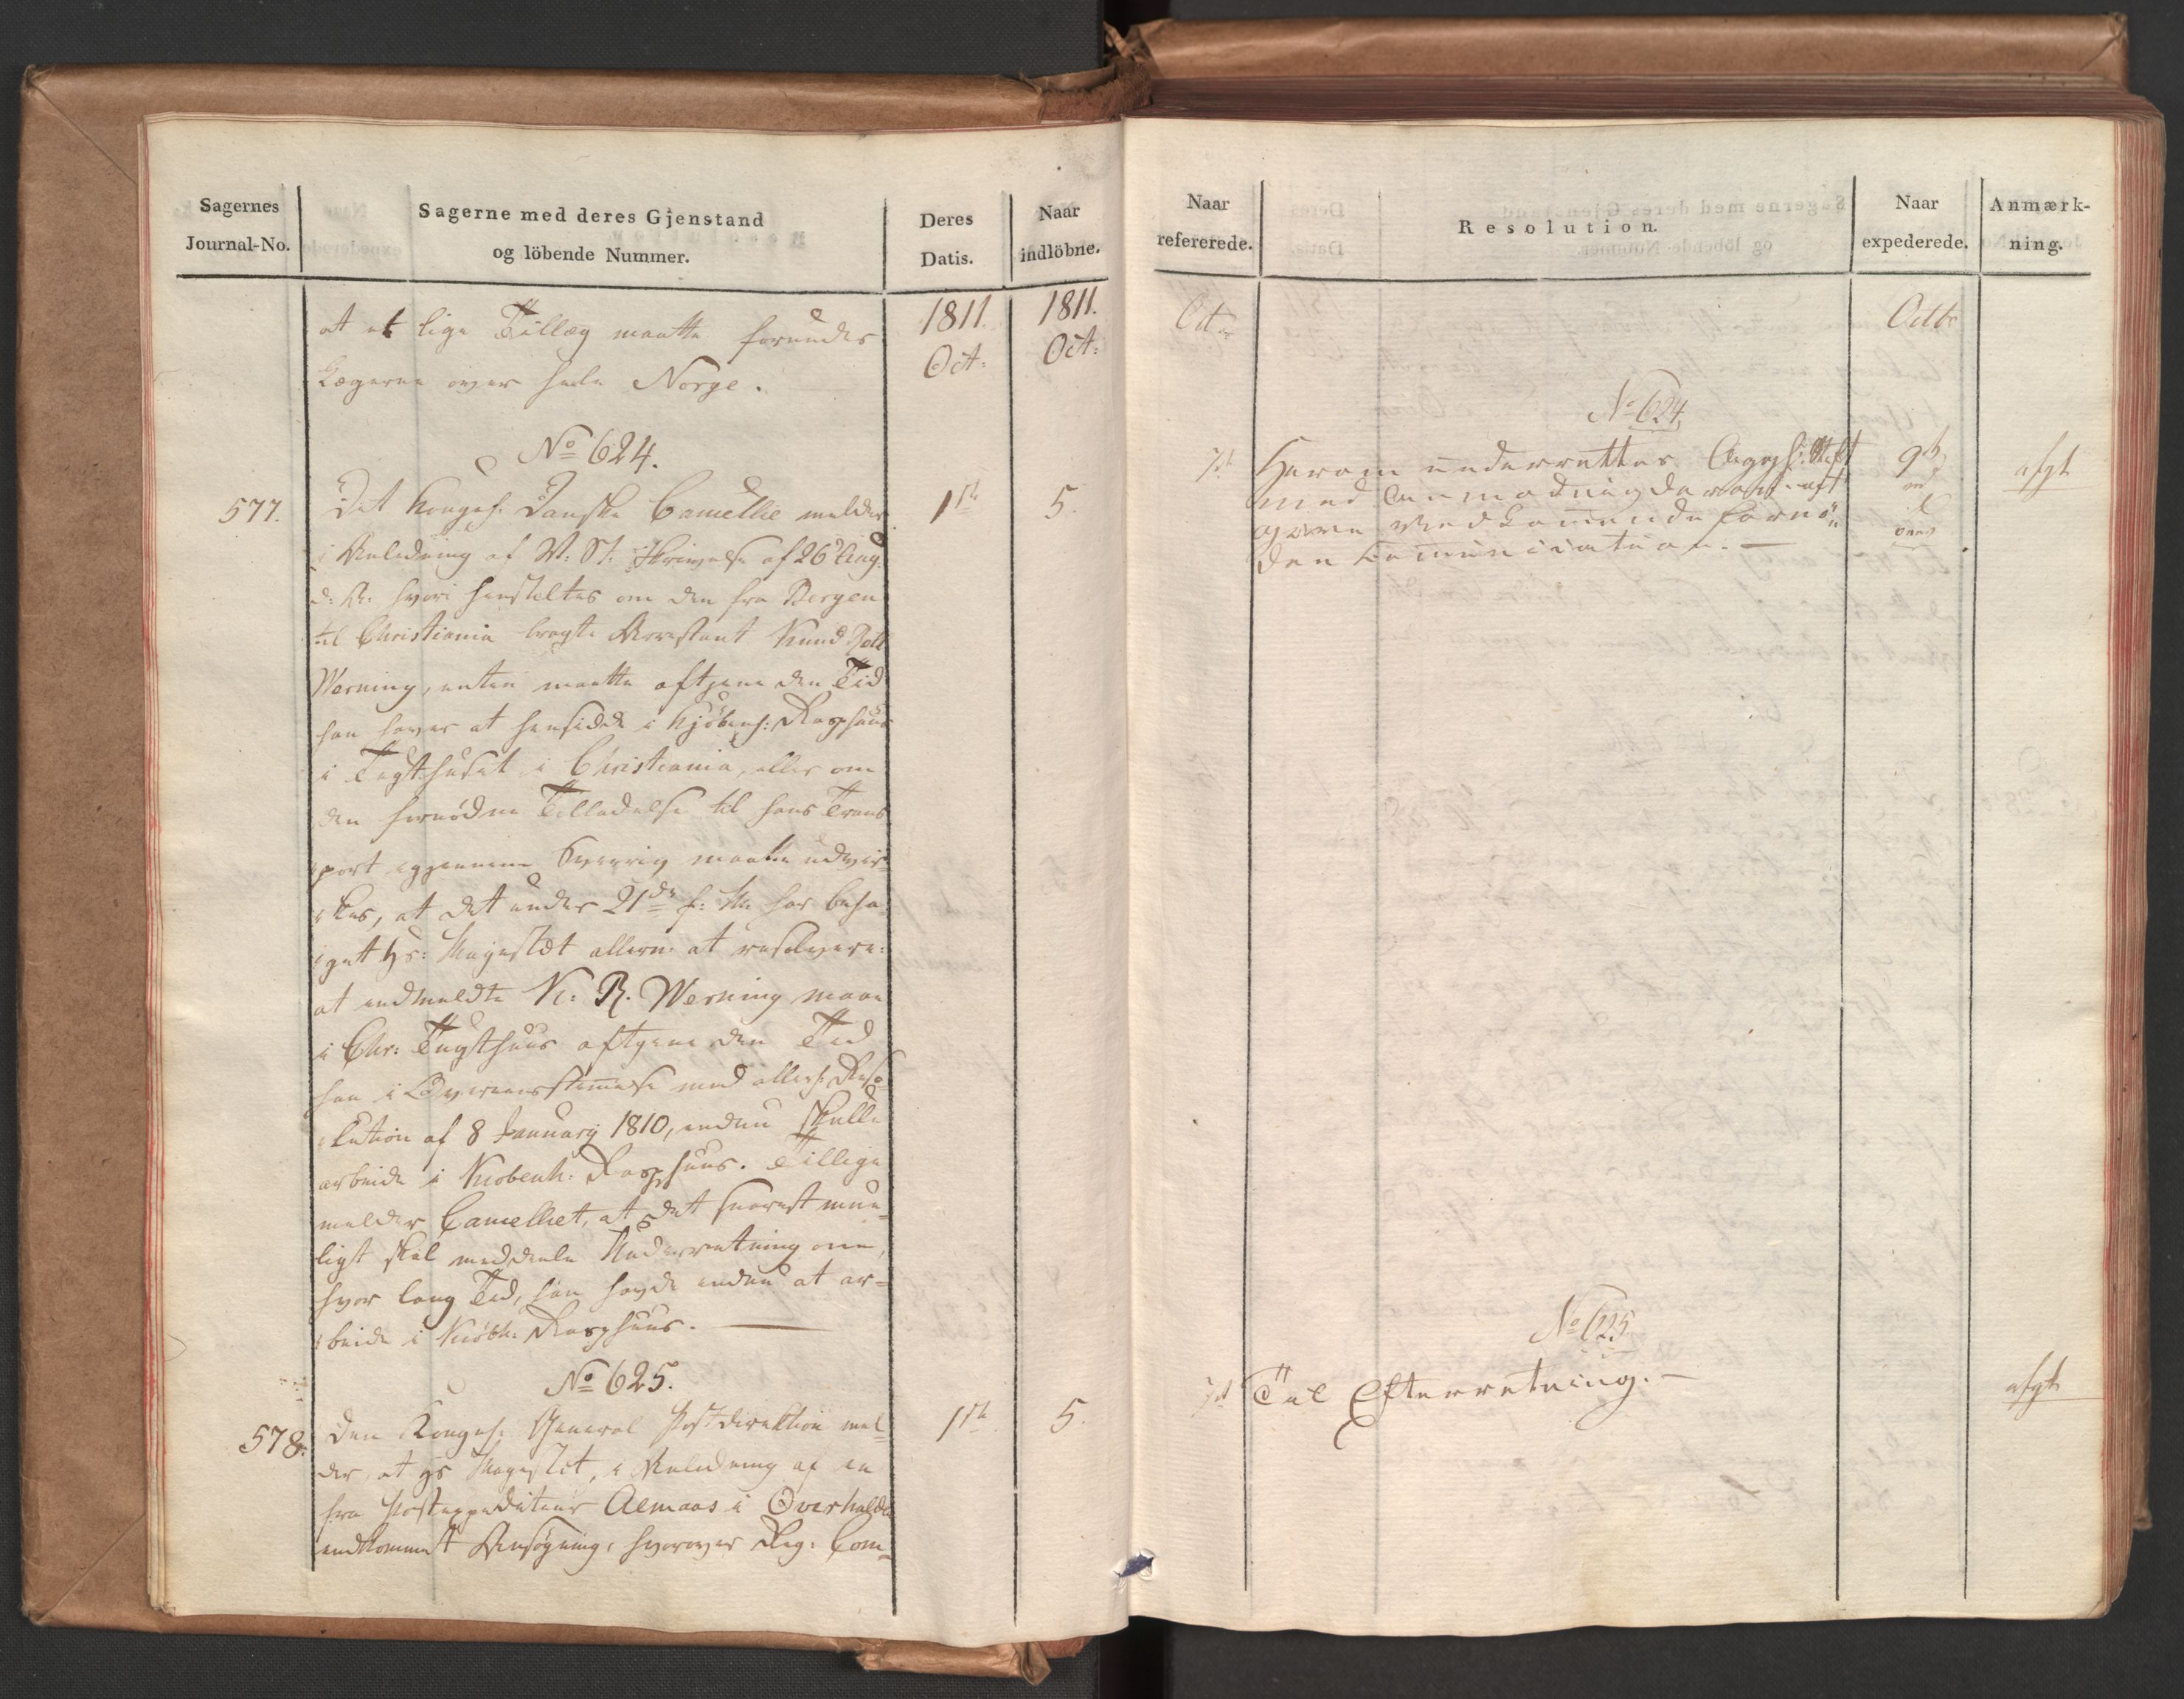 Sagernes
Journal-No.
Sagerne med deres Gjenstand
og löbende Nummer.
Deres
Datis.
Naar
indlöbne.
1811.
Oct:
1811.
Oct:
at et lige Tillæg maatte forundes
Lægerne over hele Norge.
No 624.
577.
Det Kongel. Danske Cancellie melder
i Anledning af V: St: Skrivelse af 26 Aug.
d: A: hvori henstilles om den fra Bergen
til Christiania bragte Arrestant Knud Roll
Werning, enten maatte aftjene den Tid
han haver at hensidde i Kjöbenh: Rasphuus
i Tugthuset i Christiania, eller om
den fornödne Tilladelse til hans Trans
port igjennem Sverrig maatte udvir-
kes, at det under 21de f: M. har beha-
get Hs: Majestæt allern: at resolvere:
at anmeldte K: R. Werning maae
i Chr: Tugthuus aftjene den Tid
han i Overeensstemmelse med allerh: Reso-
lution af 8 Januarij 1810, endnu skulle
arbeide i Kiobenh: Rasphuus. Tillige
melder Cancelliet, at det snarest mue-
ligt skal meddeele Underretning om,
hvor lang Tid, han havde endnu at ar-
beide i Kiöbh: Rasphuus.
1ste
5.
No 625.
578.
Den Kongel: General Postdirektion mel-
der, at Hs Majestet, i Anledning af en
fra Postexpediteur Aemaas i Overhalden
indkommet Ansögning, hvorover Reg: Com-
1ste
5.
Naar
refererede.
Resolution.
Naar
expederede.
Anmærk-
ning.
Octr
Octbr
No 624
7d
Herom underrettes Aggersh: Stift
med Anmodning derom at
gjøre Vedkommende fornö-
den Communication.
9de
afgt
No 625
7d
Til Efterretning.
afgt